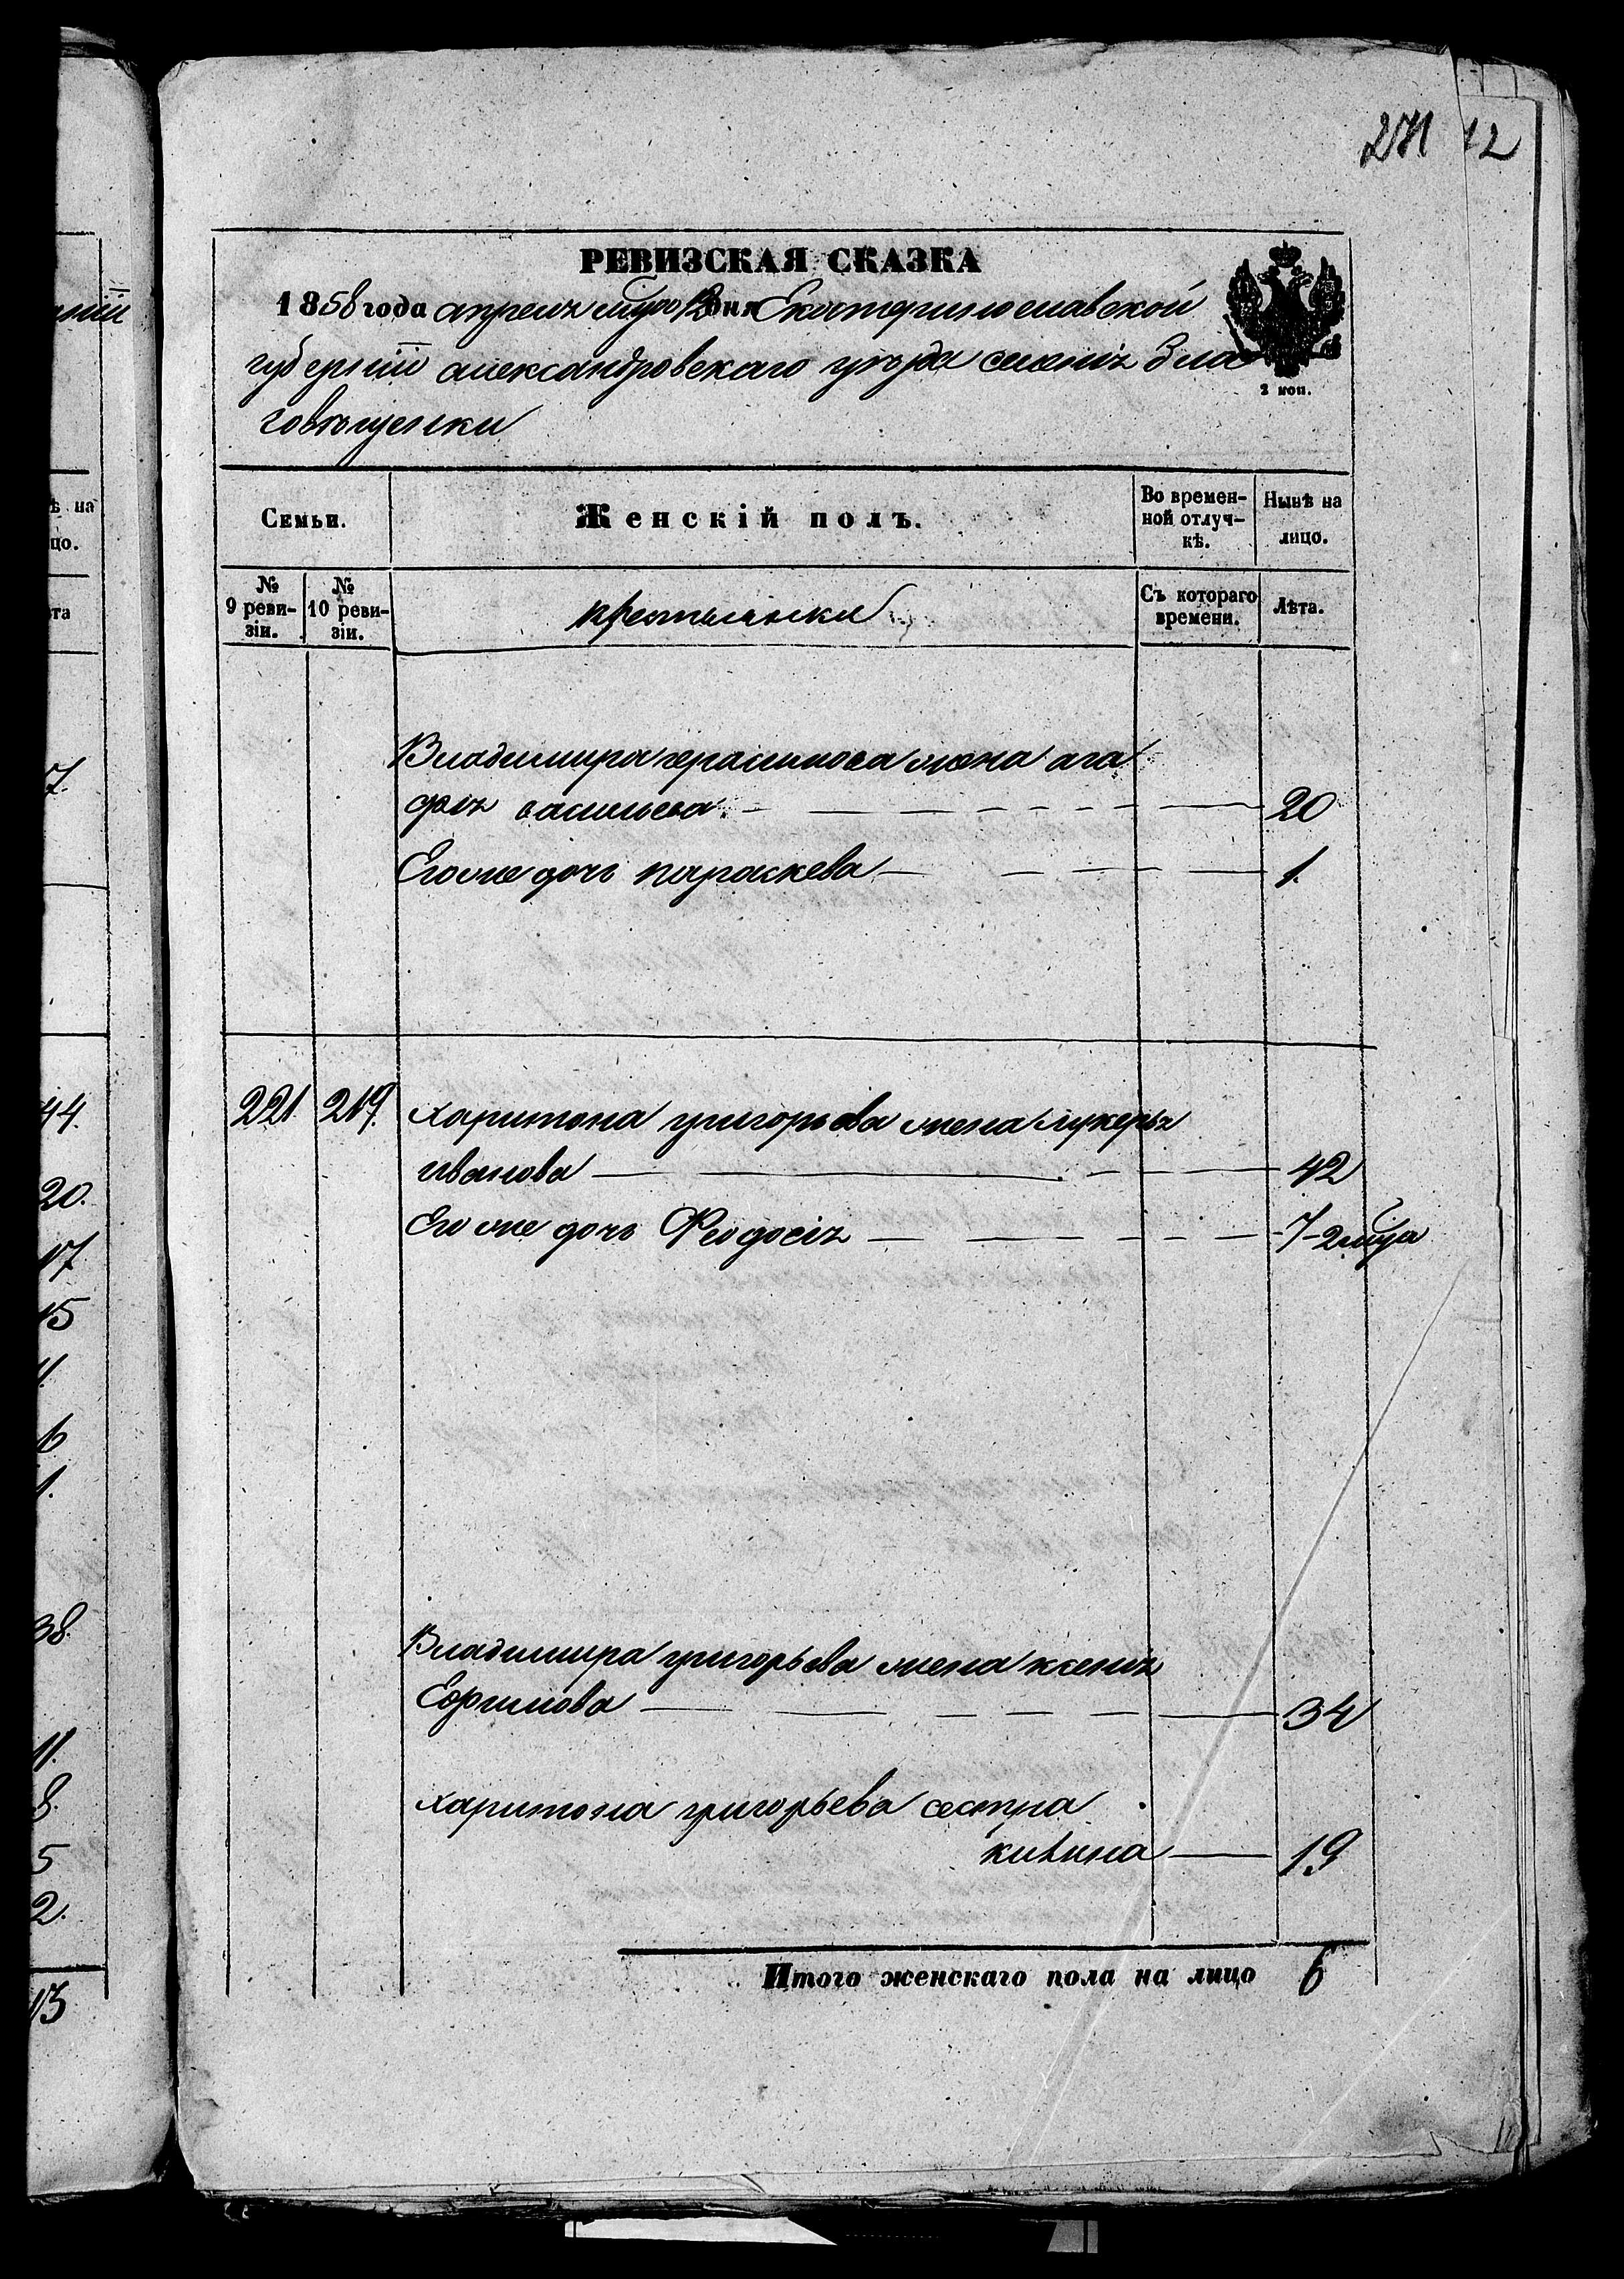 271 12
РЕВИЗСКАЯ СКАЗКА
1858 года апреля мца 12 дня Екатеринославской
губернии александровскаго уезда селения Бла
говещенки
2 коп.
Семьи.
Женскій полъ.
Во времен-
ной отлуч-
кѣ.
Нынѣ на
лицо.
№
9 реви-
зіи.
№
10 реви-
зіи.
крестьянки
Съ котораго
времени.
Лѣта.
Владимира герасимова жена ага
фия васильева 20
Его же дочь параскева 1.
221 219. харитона григорьева жена лукерья
иванова 42
Его же дочь Феодосия 7-2 мца
Владимира григорьева жена ксения
Ефимова 34
харитона григорьева сестра
19
Итого женскаго пола на лицо 6
ѣ на
цо.
та
7.
44.
20.
17
15
4.
6
1.
38.
11.
8.
5
2.
13